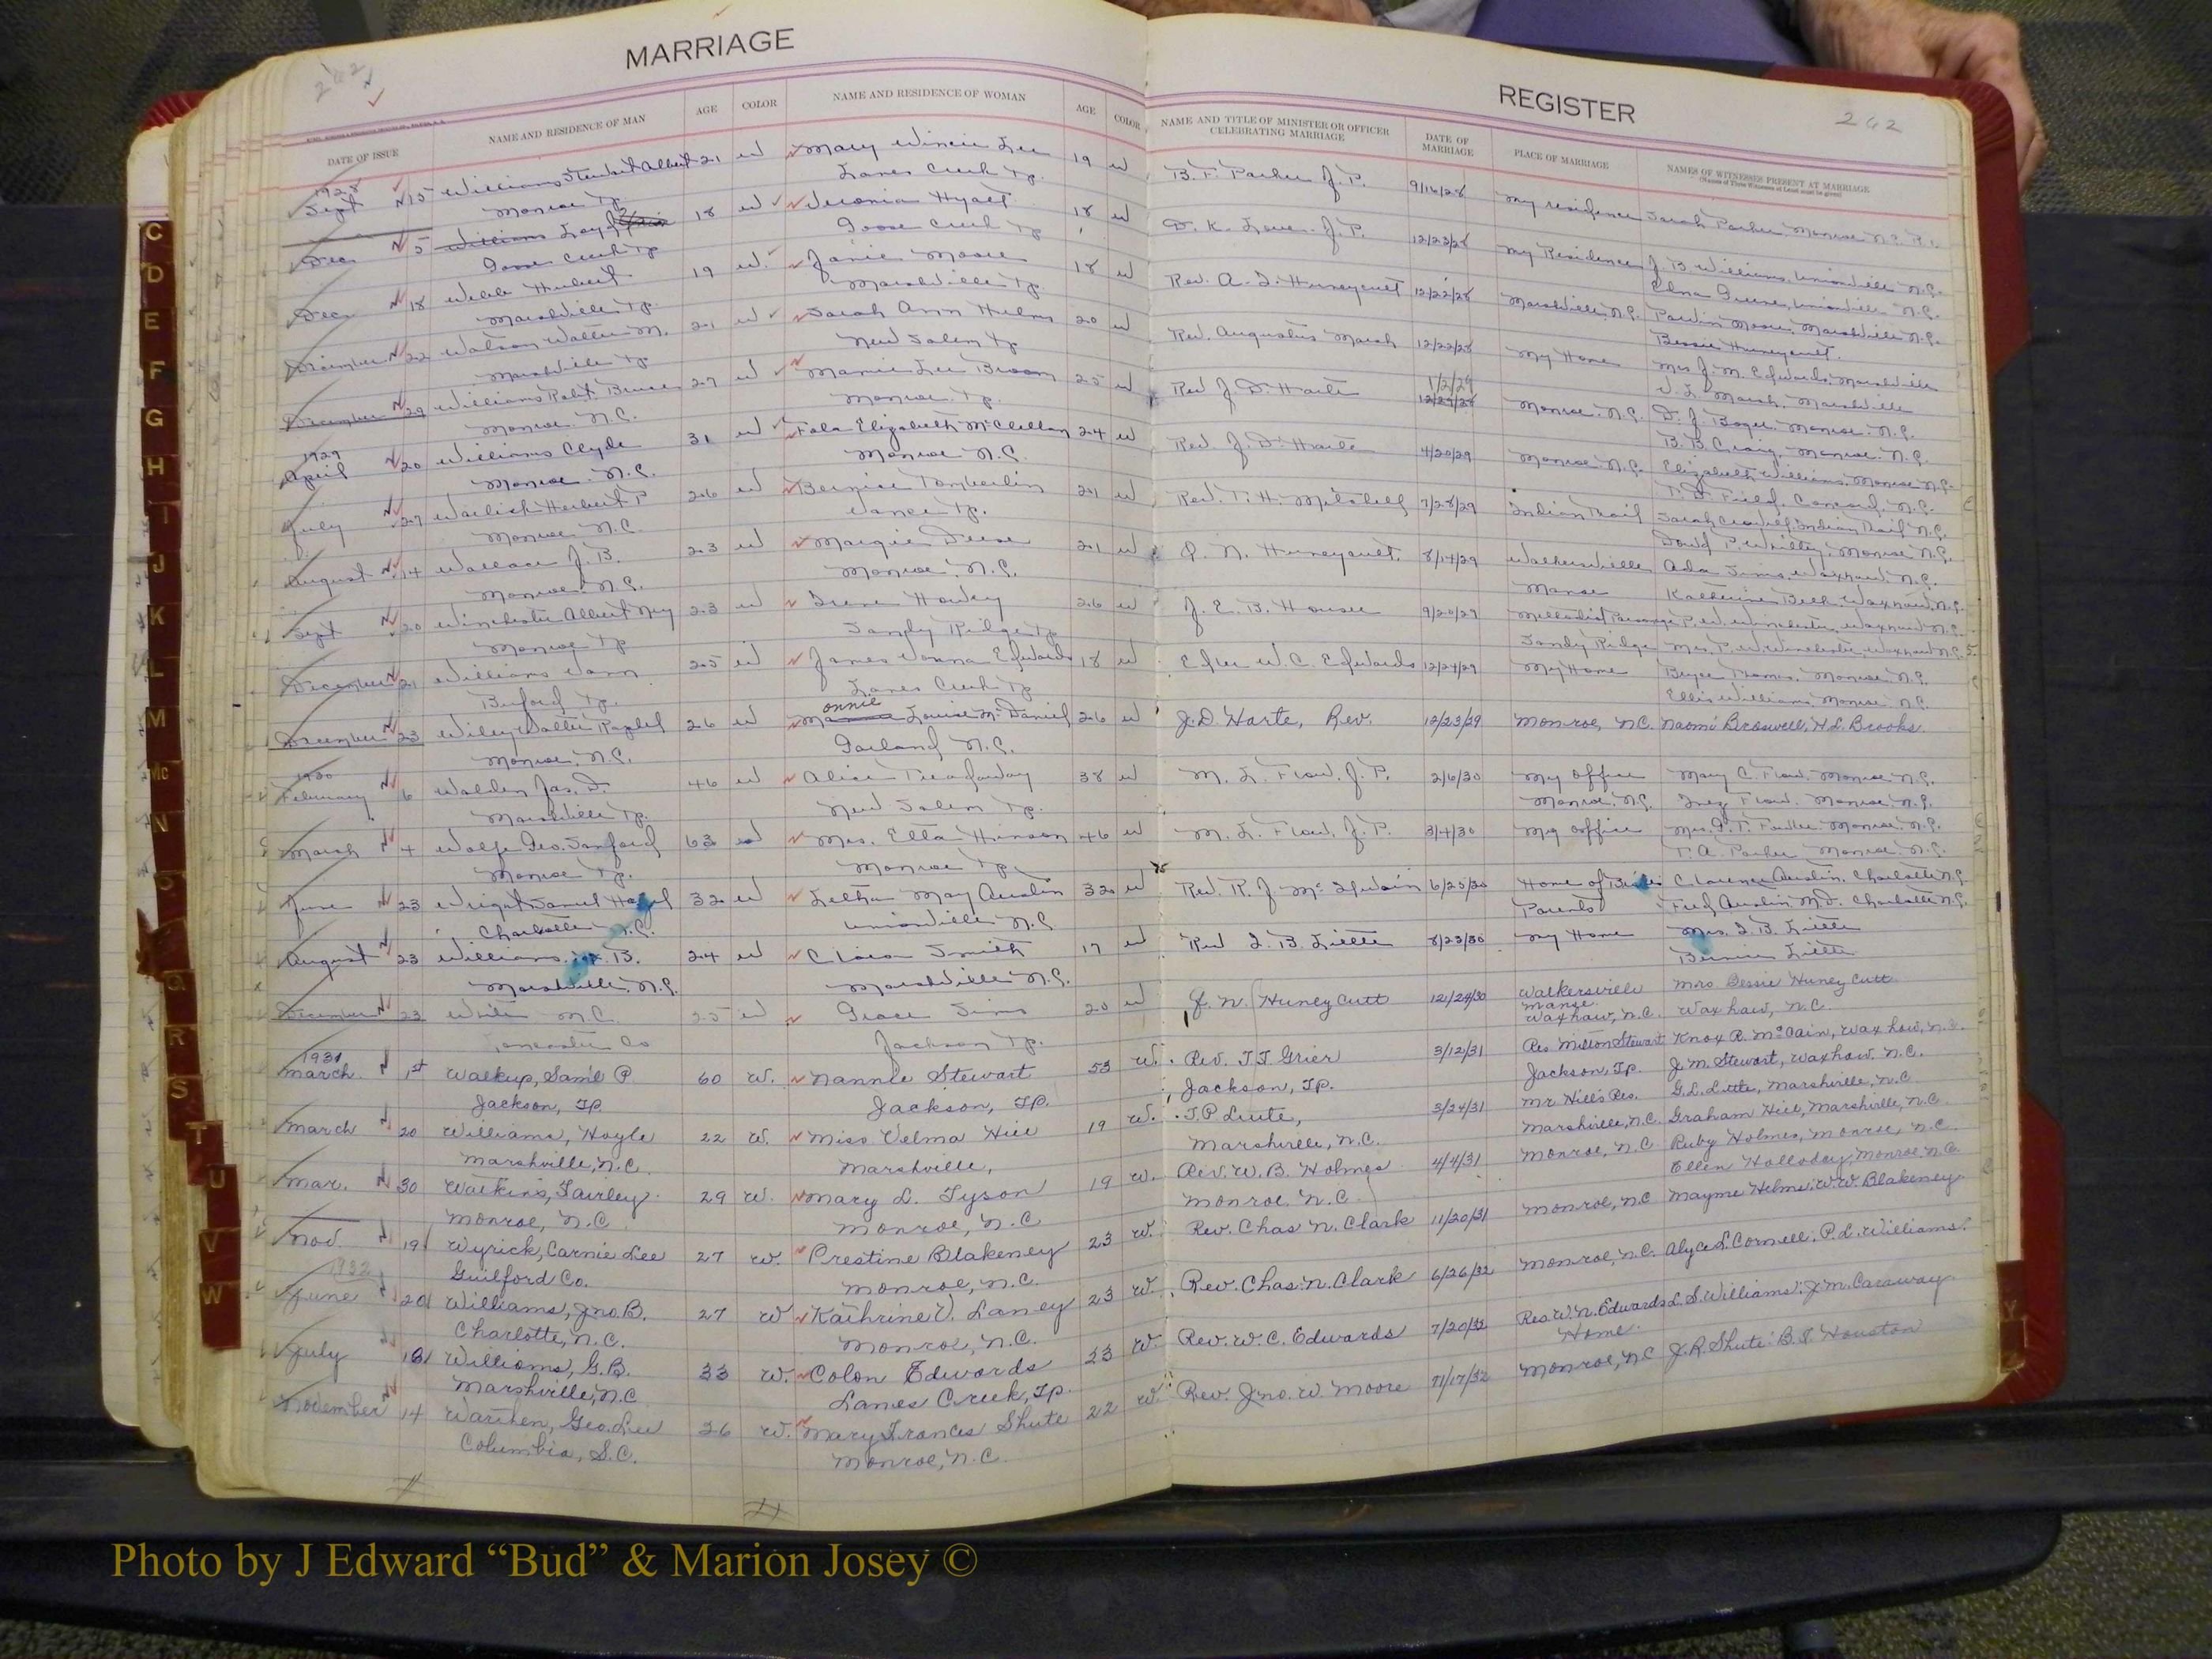 MARRIAGE
REGISTER
262
262
DATE OF ISSUE
NAME AND RESIDENCE OF MAN
AGE
COLOR
NAME AND RESIDENCE OF WOMAN
AGE
COLOR
NAME AND TITLE OF MINISTER OR OFFICER CELEBRATING MARRIAGE
DATE OF MARRIAGE
PLACE OF MARRIAGE
NAMES OF WITNESSES PRESENT AT MARRIAGE
1928
Sept 15 Williams Stewart Albert 21 W Mary Lee 19 W B. F. Parker J.P. 9/16/28 My residence Sarah Parker, Monroe N.C. R1
Monroe Tp Lanes Creek Tp.
Dec 5 Williams Loy 18 W Veronia Hyatt 18 W D. K. J.P. 12/23/28 My Residence J. B. Williams, Unionville N.C.
Goose Creek Tp Goose Creek Tp Edna Greene, Unionville N.C.
Dec 18 Webb Hubert 19 W Janie Moore 18 W Rev. A. L. Huneycutt 12/22/28 Marshville, N.C. Moore, Marshville N.C.
Marshville Tp. Marshville Tp. Bessie Huneycutt.
December 22 Watson Walter M. 21 W Sarah Ann Helms 20 W Rev. Augustus Marsh 12/22/28 My Home Mrs J. M. Edwards, Marshville
Marshville Tp New Salem Tp Marsh, Marshville
December 29 Williams Robt. Bruce 27 W Mamie Lee Broom 25 W Rev J. D. Harte 1/2/29 12/29/28 Monroe, N.C. D. J. Monroe, N.C.
Monroe, N.C. Monroe, Tp. B. B. Craig, Monroe, N.C.
1929
April 20 Williams Clyde 31 W Elizabeth McClellan 24 W Rev. J. D. Harte 4/20/29 Monroe, N.C. Elizabeth Williams, Monroe N.C.
Monroe, N.C. Monroe N.C. Concord, N.C.
July 27 Warlick Herbert P 26 W Bernice Tomberlin 21 W Rev. T. H. Mitchell 7/28/29 Indian Trail Sarah Indian Trail N.C.
Monroe N.C. Vance Tp. Monroe N.C.
August 14 Wallace J. B. 23 W Margie Deese 21 W J. N. Huneycutt. 8/14/29 Walkersville Ada Sims, Waxhaw, N.C.
Monroe N.C. Monroe, N.C. Manse Katherine Belk, Waxhaw, N.C.
Sept 20 Winchester Albert 23 W Irene Howey 26 W J. E. B. Houser 9/20/29 Methodist Parsonage P. W. Winchester, Waxhaw N.C.
Monroe Tp Sandy Ridge Tp Sandy Ridge Mrs. P. W. Winchester, Waxhaw N.C.
December 21 Williams Vann 25 W James Vonna Edwards 18 W W. C. Edwards 12/24/29 My Home Bryce Thomas, Monroe N.C.
Buford Tp. Lanes Creek Tp Ellis Williams Monroe N.C.
onnie
December 23 Wiley 26 W Louise McDaniel 26 W J. D. Harte, Rev. 12/23/29 Monroe, N.C. Naomi Braswell, H.L. Brooks.
Monroe, N.C. Garland N.C.
1930
February 6 Walden Jas. D. 46 W Alice Treadaway 38 W M. L. Flow, J.P. 2/6/30 My office Mary C. Flow, Monroe N.C.
Marshville Tp. New Salem Tp. Monroe, N.C. Inez Flow, Monroe, N.C.
March 4 Wolfe Geo. Sanford 63 W Mrs. Etta Hinson 46 W M. L. Flow, J.P. 3/4/30 My office Mrs. Monroe, N.C.
Monroe Tp. Monroe Tp. T. A. Parker Monroe, N.C.
June 23 Wright Samuel 32 W Letha May Austin 32 W Rev. R. J. McIlwain 6/25/30 Home of Brides Clarence Austin, Charlotte N.C.
Charlotte N.C. Unionville N.C. Parents Fred Austin, M.D. Charlotte N.C.
August 23 Williams B. 24 W Clara Smith 17 W Rev J. B. Little 8/23/30 My Home Mrs. J. B. Little
Marshville, N.C. Marshville N.C. Little
December 23 White M.C. 25 W Grace Sims 20 W J. N. Huneycutt 12/24/30 Walkersville Mrs Bessie Huneycutt
Lancaster Co Jackson Tp. Manse Waxhaw, N.C. Waxhaw, N.C.
1931
March 1st Walkup, Sam'l P 60 W. Nannie Stewart 53 W. Rev. J. J. Grier 3/12/31 Res Milton Stewart Knox R. McCain, Waxhaw, N.C.
Jackson, Tp Jackson, Tp. Jackson, Tp. Jackson, Tp. J. M. Stewart, Waxhaw, N.C.
March 20 Williams, Hoyle 22 W. Miss Velma Hill 19 W. J. P. Lute, 3/24/31 Mr. Hill's Res. G. L. Little, Marshville, N.C
Marshville, N.C. Marshville, Marshville, N.C. Marshville, N.C. Graham Hill, Marshville, N.C.
Mar. 30 Watkins, Fairley 29 W. Mary L. Tyson 19 W. Rev. W. B. Holmes 4/4/31 Monroe, N.C Ruby Holmes, Monroe, N.C.
Monroe, N.C. Monroe, N.C Monroe N.C. Ellen Holloday, Monroe N.C.
Nov. 19 Wyrick, Carnie Lee 27 W. Prestine Blakeney 23 W. Rev. Chas N. Clark 11/20/31 Monroe, N.C Mayme Helms: W.W. Blakeney
Guilford Co. Monroe, N.C.
1932
June 20 Williams, Jno. B. 27 W Kathrine V. Laney 23 W. Rev. Chas. N. Clark 6/26/32 Monroe, N.C. Alyce L. Cornell: P. L. Williams.
Charlotte, N.C. Monroe, N.C.
July 16 Williams, G. B. 33 W. Colon Edwards 33 W. Rev. W. C. Edwards 7/20/32 Res. W. N. Edwards L. S. Williams: J. M. Caraway
Marshville, N.C Lanes Creek, Tp. Home
November 14 Warren, Geo. Lee 26 W. Mary Frances Shute 22 W. Rev. Jno. W. Moore 11/17/32 Monroe, N.C J. R. Shute: B. S. Houston
Columbia, S.C. Monroe, N.C.
C
D
E
F
G
H
I
J
K
L
M
Mc
N
O
Q
R
S
T
U
V
W
Y
Photo by J Edward “Bud” & Marion Josey ©